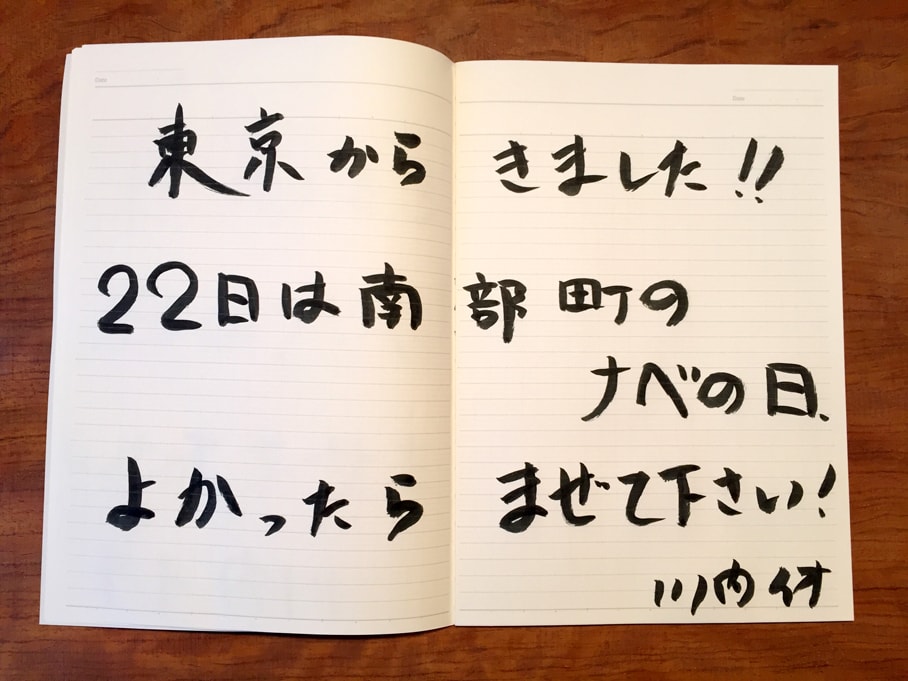 Date
Date
東京からきました!!
22日は南部町の
ナベの日、
よかったらまぜて下さい!
川内イオ